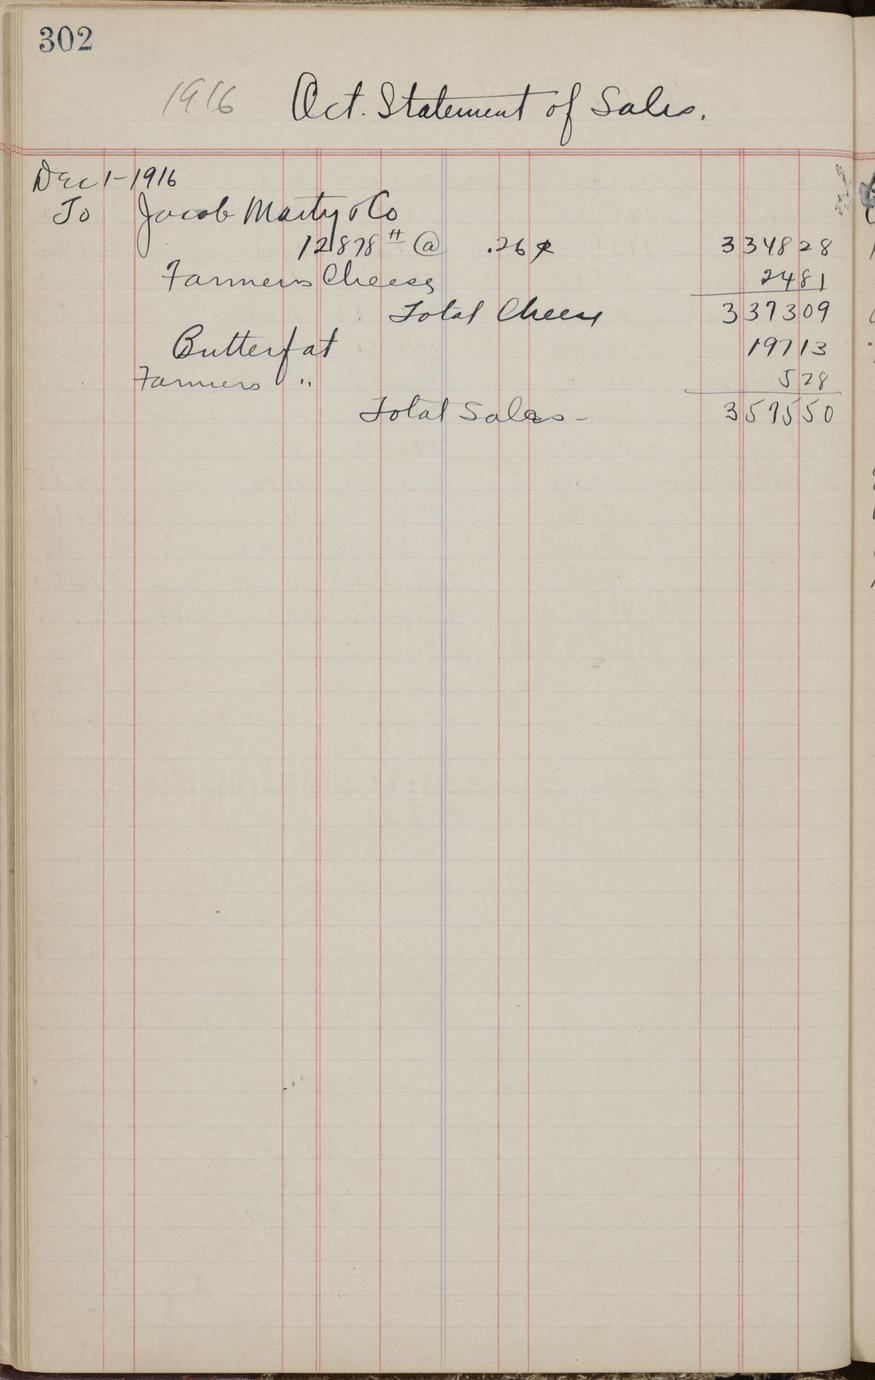 302
1916 Oct. Statement of Sales.
Dec 1-1916
To Jacob Marty & Co
12878 # @ .26 ¢ 3348 28
Farmers Cheese 24 81
Total Cheese 3373 09
Butterfat 197 13
Farmers " 5 28
Total Sales - 3575 50